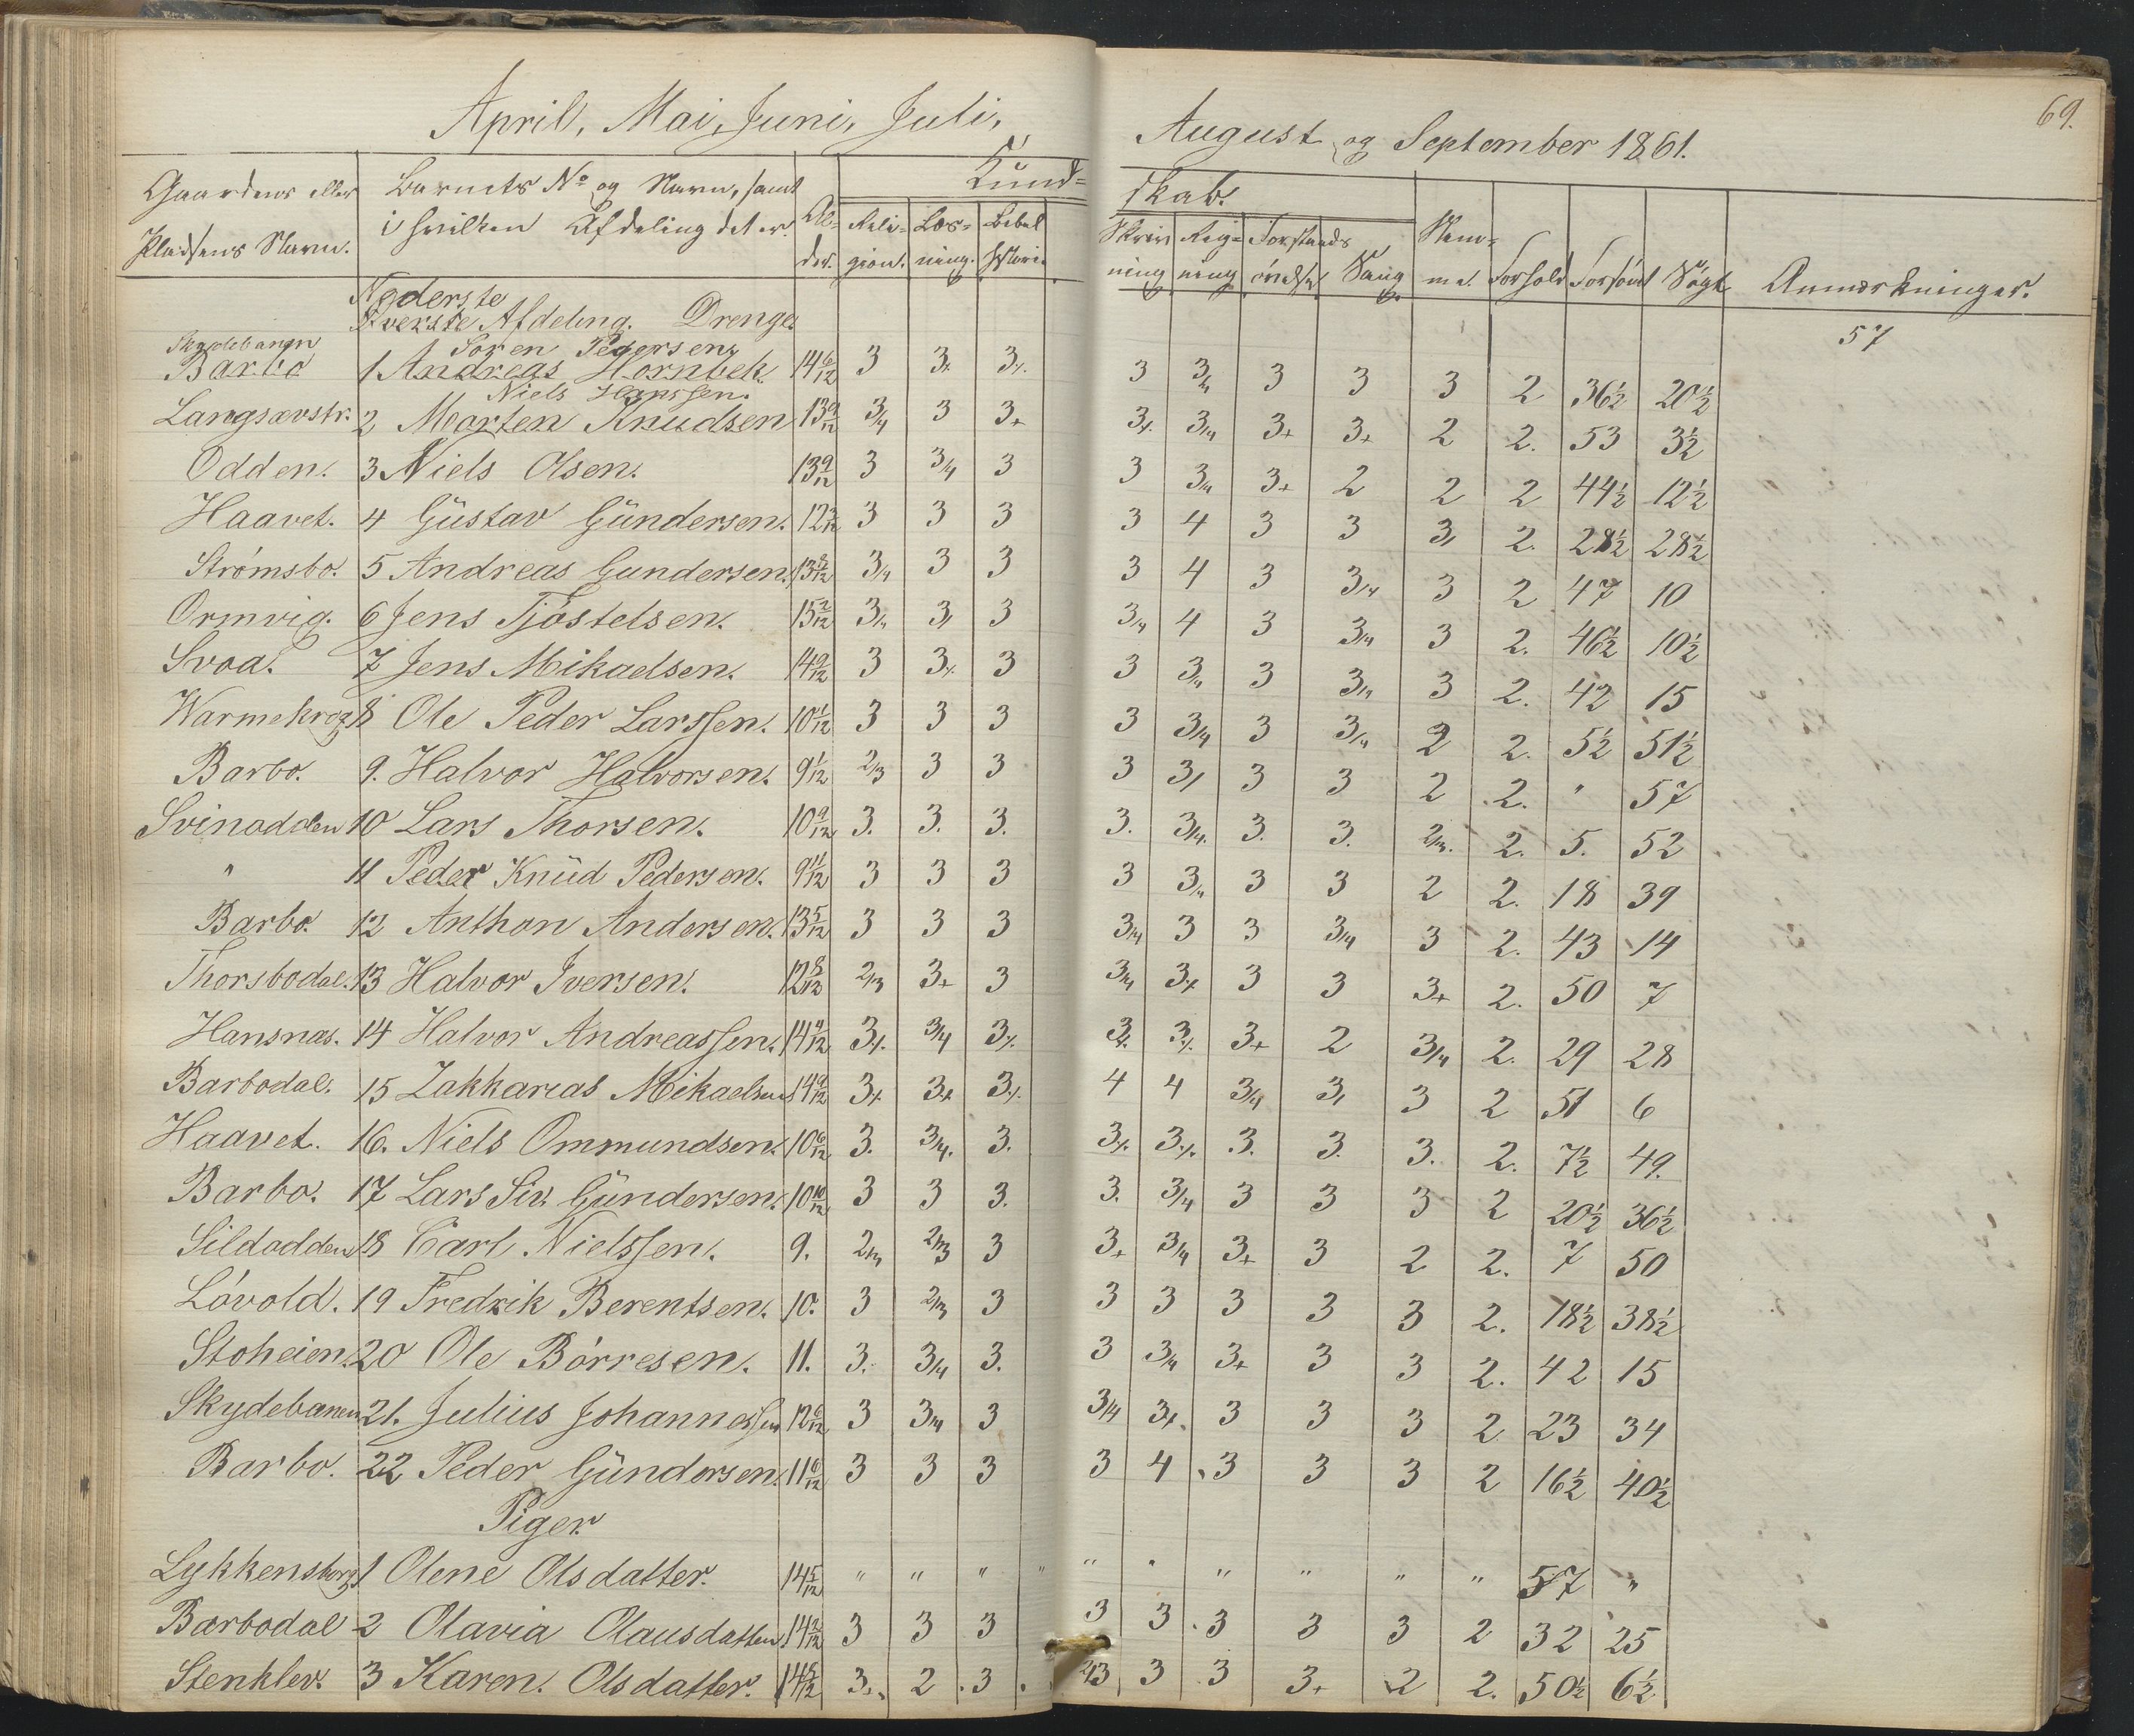 April, Mai, Juni, Juli,
August og September 1861.
69.
Gaardens eller Pladsens Navn.
Barnets No og Navn, samt i hvilken Afdeling det er.
Al- der.
Kund- skab.
Reli- gion.
Læs- ning.
Bibel historie
Skriv ning
Reg- ning
Sang
Nem- me.
Forhold
Forsømt
Søgt
Anmærkninger.
Nederste
Øverste Afdeling. Drenge.
57
Skydebanen Søren Pedersen.
Barbo 1 Andreas Hornbek. 14 6/12 3 3 3 3 3 3 3 3 2 36½ 20½
Niels Hanssen.
Langsævstr. 2 Morten Knudsen 13 9/12 3/4 3 3+ 3 3/4 3+ 3+ 2 2. 53 3½
Odden. 3 Niels Olsen. 13 9/12 3 3/4 3 3 3/4 3+ 2 2 2 44½ 12½
Haavet. 4 Gustav Gundersen. 12 3/12 3 3 3 3 4 3 3 3 2. 28½ 28½
Strømsbo. 5 Andreas Gundersen. 13 8/12 3/4 3 3 3 4 3 3/4 3 2 47 10
Ormvig. 6 Jens Tjøstelsen. 15 2/12 3/4 3 3 3/4 4 3 3/4 3 2. 46½ 10½
Svoa. 7 Jens Mikaelsen. 14 9/12 3 3 3 3 3/4 3 3/4 3 2. 42 15
Warmekrog 8 Ole Peder Larssen. 10 1/12 3 3 3 3 3/4 3 3/4 2 2. 5½ 51½
Barbo. 9. Halvor Halvorsen. 9 1/12 2/3 3 3 3 3 3 3 2 2. " 57
Svinodden 10 Lars Thorsen. 10 9/12 3. 3. 3. 3. 3/4. 3. 3. 2/3. 2. 5. 52
" 11 Peder Knud Pedersen. 9 11/12 3 3 3 3 3/4 3 3 2 2. 18 39
Barbo. 12 Anthon Andersen. 13 5/12 3 3 3 3/4 3 3 3/4 3 2. 43 14
Thorsbodal. 13 Halvor Iversen. 12 8/12 2/3 3+ 3 3/4 3+ 3 3 3+ 2. 50 7
Hansnæs. 14 Halvor Andreassen. 14 9/12 3 3/4 3 3 3 3+ 2 3/4 2. 29 28
Barbodal. 15 Zakkarias Mikaelsen 14 9/12 3+ 3+ 3 4 4 3/4 3 3 2 51 6
Haavet. 16. Niels Ommundsen. 10 6/12 3. 3/4. 3. 3 3 3. 3. 3. 2. 7½ 49.
Barbo. 17 Lars Siv. Gundersen. 10 10/12 3 3 3. 3. 3/4 3 3 3 2 20½ 36½
Sildodden 18 Carl Nielssen. 9. 2/3 2/3 3 3+ 3/4 3+ 3 2 2. 7 50
Løvold. 19 Fredrik Berentsen. 10. 3 2/3 3 3 3 3 3 3 2. 18½ 38½
Stoheien. 20 Ole Børresen. 11. 3. 3/4 3. 3 3/4 3+ 3 3 2. 42 15
Skydebanen 21. Julius Johannessen 12 6/12 3 3/4 3 3/4 3+ 3 3 3 2 23 34
Barbo. 22 Peder Gundersen. 11 6/12 3 3 3 3 4 3 3 3 2 16½ 40½
Piger.
Lykkensborg 1 Olene Olsdatter. 14 5/12 " " " " " " " " " 57 "
Barbodal 2 Olavia Olausdatter 14 2/12 3 3 3 3 3 3 3 3 2 32 25
Stenklev. 3 Karen. Olsdatter. 14 8/12 3+ 2 3 2/3 3 3 3+ 2 2. 50½ 6½